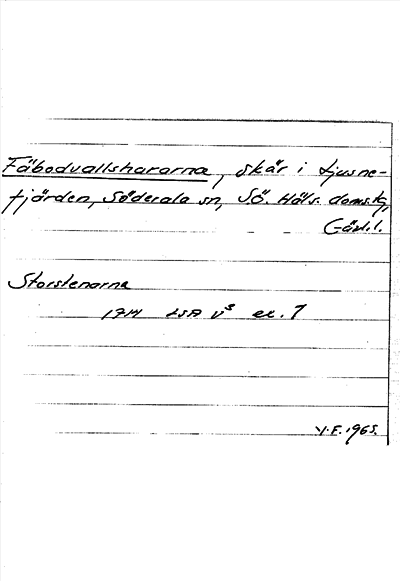 Fäbodvallshararna, skär i Ljusne-
fjärden, Söderala sn, S.Ö. Häls. doms.,
Gävl.l.
Storstenarna
1714 LSA V³ ex. 1
V.E. 1965.